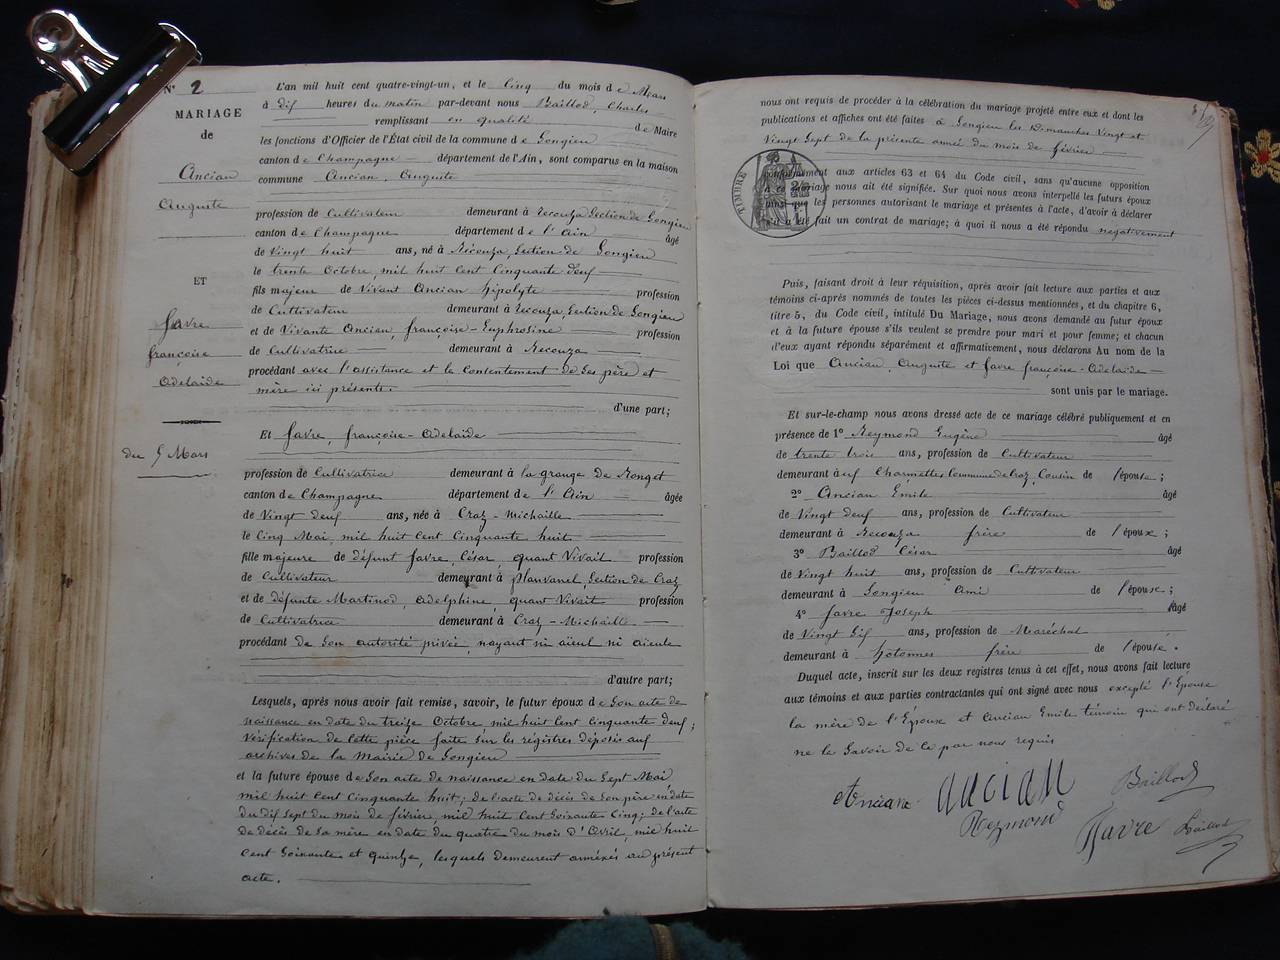 N° 2
MARIAGE
de
Ancian
Auguste
ET
favre
françoise
Adelaide
du 5 Mars
L'an mil huit cent quatre-vingt-un, et le Cinq du mois de Mars
à dix heures du matin par-devant nous Baillod, Charles
remplissant en qualité de Maire
les fonctions d'Officier de l'État civil de la commune de Songieu
canton de Champagne département de l'Ain, sont comparus en la maison
commune Ancian, Auguste
profession de Cultivateur demeurant à Recouza, Section de Songieu
canton de Champagne département de l'Ain âgé
de Vingt huit ans, né à Récouza, Section de Songieu
le trente Octobre, mil huit cent Cinquante deux
fils majeur de Vivant Ancian Hipolyte profession
de Cultivateur demeurant à Recouza, Section de Songieu
et de Vivante Ancian, françoise-Euphrosine profession
de Cultivatrice demeurant à Recouza
procédant avec l'assistance et le Consentement de Ses père et
mère ici présents.
d'une part;
Et favre, françoise-Adelaide
profession de Cultivatrice demeurant à la grange de Ronget
canton de Champagne département de l'Ain âgée
de Vingt deux ans, née à Craz-Michaille
le Cinq Mai, mil huit Cent Cinquante huit
fille majeure de défunt favre, César, quant Vivait profession
de Cultivateur demeurant à Section de Craz
et de défunte Martinod, Adelphine, quant Vivait profession
de Cultivatrice demeurant à Craz-Michaille
procédant de Son autorité privée, nayant ni aïeul ni aïeule
d'autre part;
Lesquels, après nous avoir fait remise, savoir, le futur époux de Son acte de
naissance en date du treize Octobre mil huit Cent Cinquante deux;
Vérification de Cette pièce faite Sur les régistres déposés aux
archives de la Mairie de Songieu
et la future épouse de Son acte de naissance en date du Sept Mai
mil huit Cent Cinquante huit; De l'acte de décès de Son père en date
du dix Sept du mois de février, mil huit Cent Soixante Cinq; de l'acte
de décès de Sa mère en date du quatre du mois d'Avril, mil huit
Cent Soixante et quinze, lesquels demeurent annéxés au présent
acte.
nous ont requis de procéder à la célébration du mariage projeté entre eux et dont les
publications et affiches ont été faites à Songieu les Dimanches Vingt et
Vingt Sept de la présente année du mois de février
TIMBRE
conformément aux articles 63 et 64 du Code civil, sans qu'aucune opposition
à ce mariage nous ait été signifiée. Sur quoi nous avons interpellé les futurs époux
ainsi que les personnes autorisant le mariage et présentes à l'acte, d'avoir à déclarer
s'il a été fait un contrat de mariage; à quoi il nous a été répondu négativement
Puis, faisant droit à leur réquisition, après avoir fait lecture aux parties et aux
témoins ci-après nommés de toutes les pièces ci-dessus mentionnées, et du chapitre 6,
titre 5, du Code civil, intitulé Du Mariage, nous avons demandé au futur époux
et à la future épouse s'ils veulent se prendre pour mari et pour femme; et chacun
d'eux ayant répondu séparément et affirmativement, nous déclarons Au nom de la
Loi que Ancian, Auguste et favre françoise-Adelaide
sont unis par le mariage.
Et sur-le-champ nous avons dressé acte de ce mariage célébré publiquement et en
présence de 1° Reymond Eugène âgé
de trente trois ans, profession de Cultivateur
demeurant aux Charmettes Commune de Craz, Cousin de l'épouse;
2° Ancian Emile âgé
de Vingt deux ans, profession de Cultivateur
demeurant à Recouza frère de l'époux;
3° Baillod César âgé
de Vingt huit ans, profession de Cultivateur
demeurant à Songieu Ami de l'épouse;
4° favre Joseph âgé
de Vingt Six ans, profession de Maréchal
demeurant à Hotonnes frère de l'épouse.
Duquel acte, inscrit sur les deux registres tenus à cet effet, nous avons fait lecture
aux témoins et aux parties contractantes qui ont signé avec nous excepté l'Epouse
la mère de l'Epoux et Ancian Emile témoin qui ont déclaré
ne le Savoir de ce par nous requis
Ancian Ancian Baillod
Reymond Favre Baillod